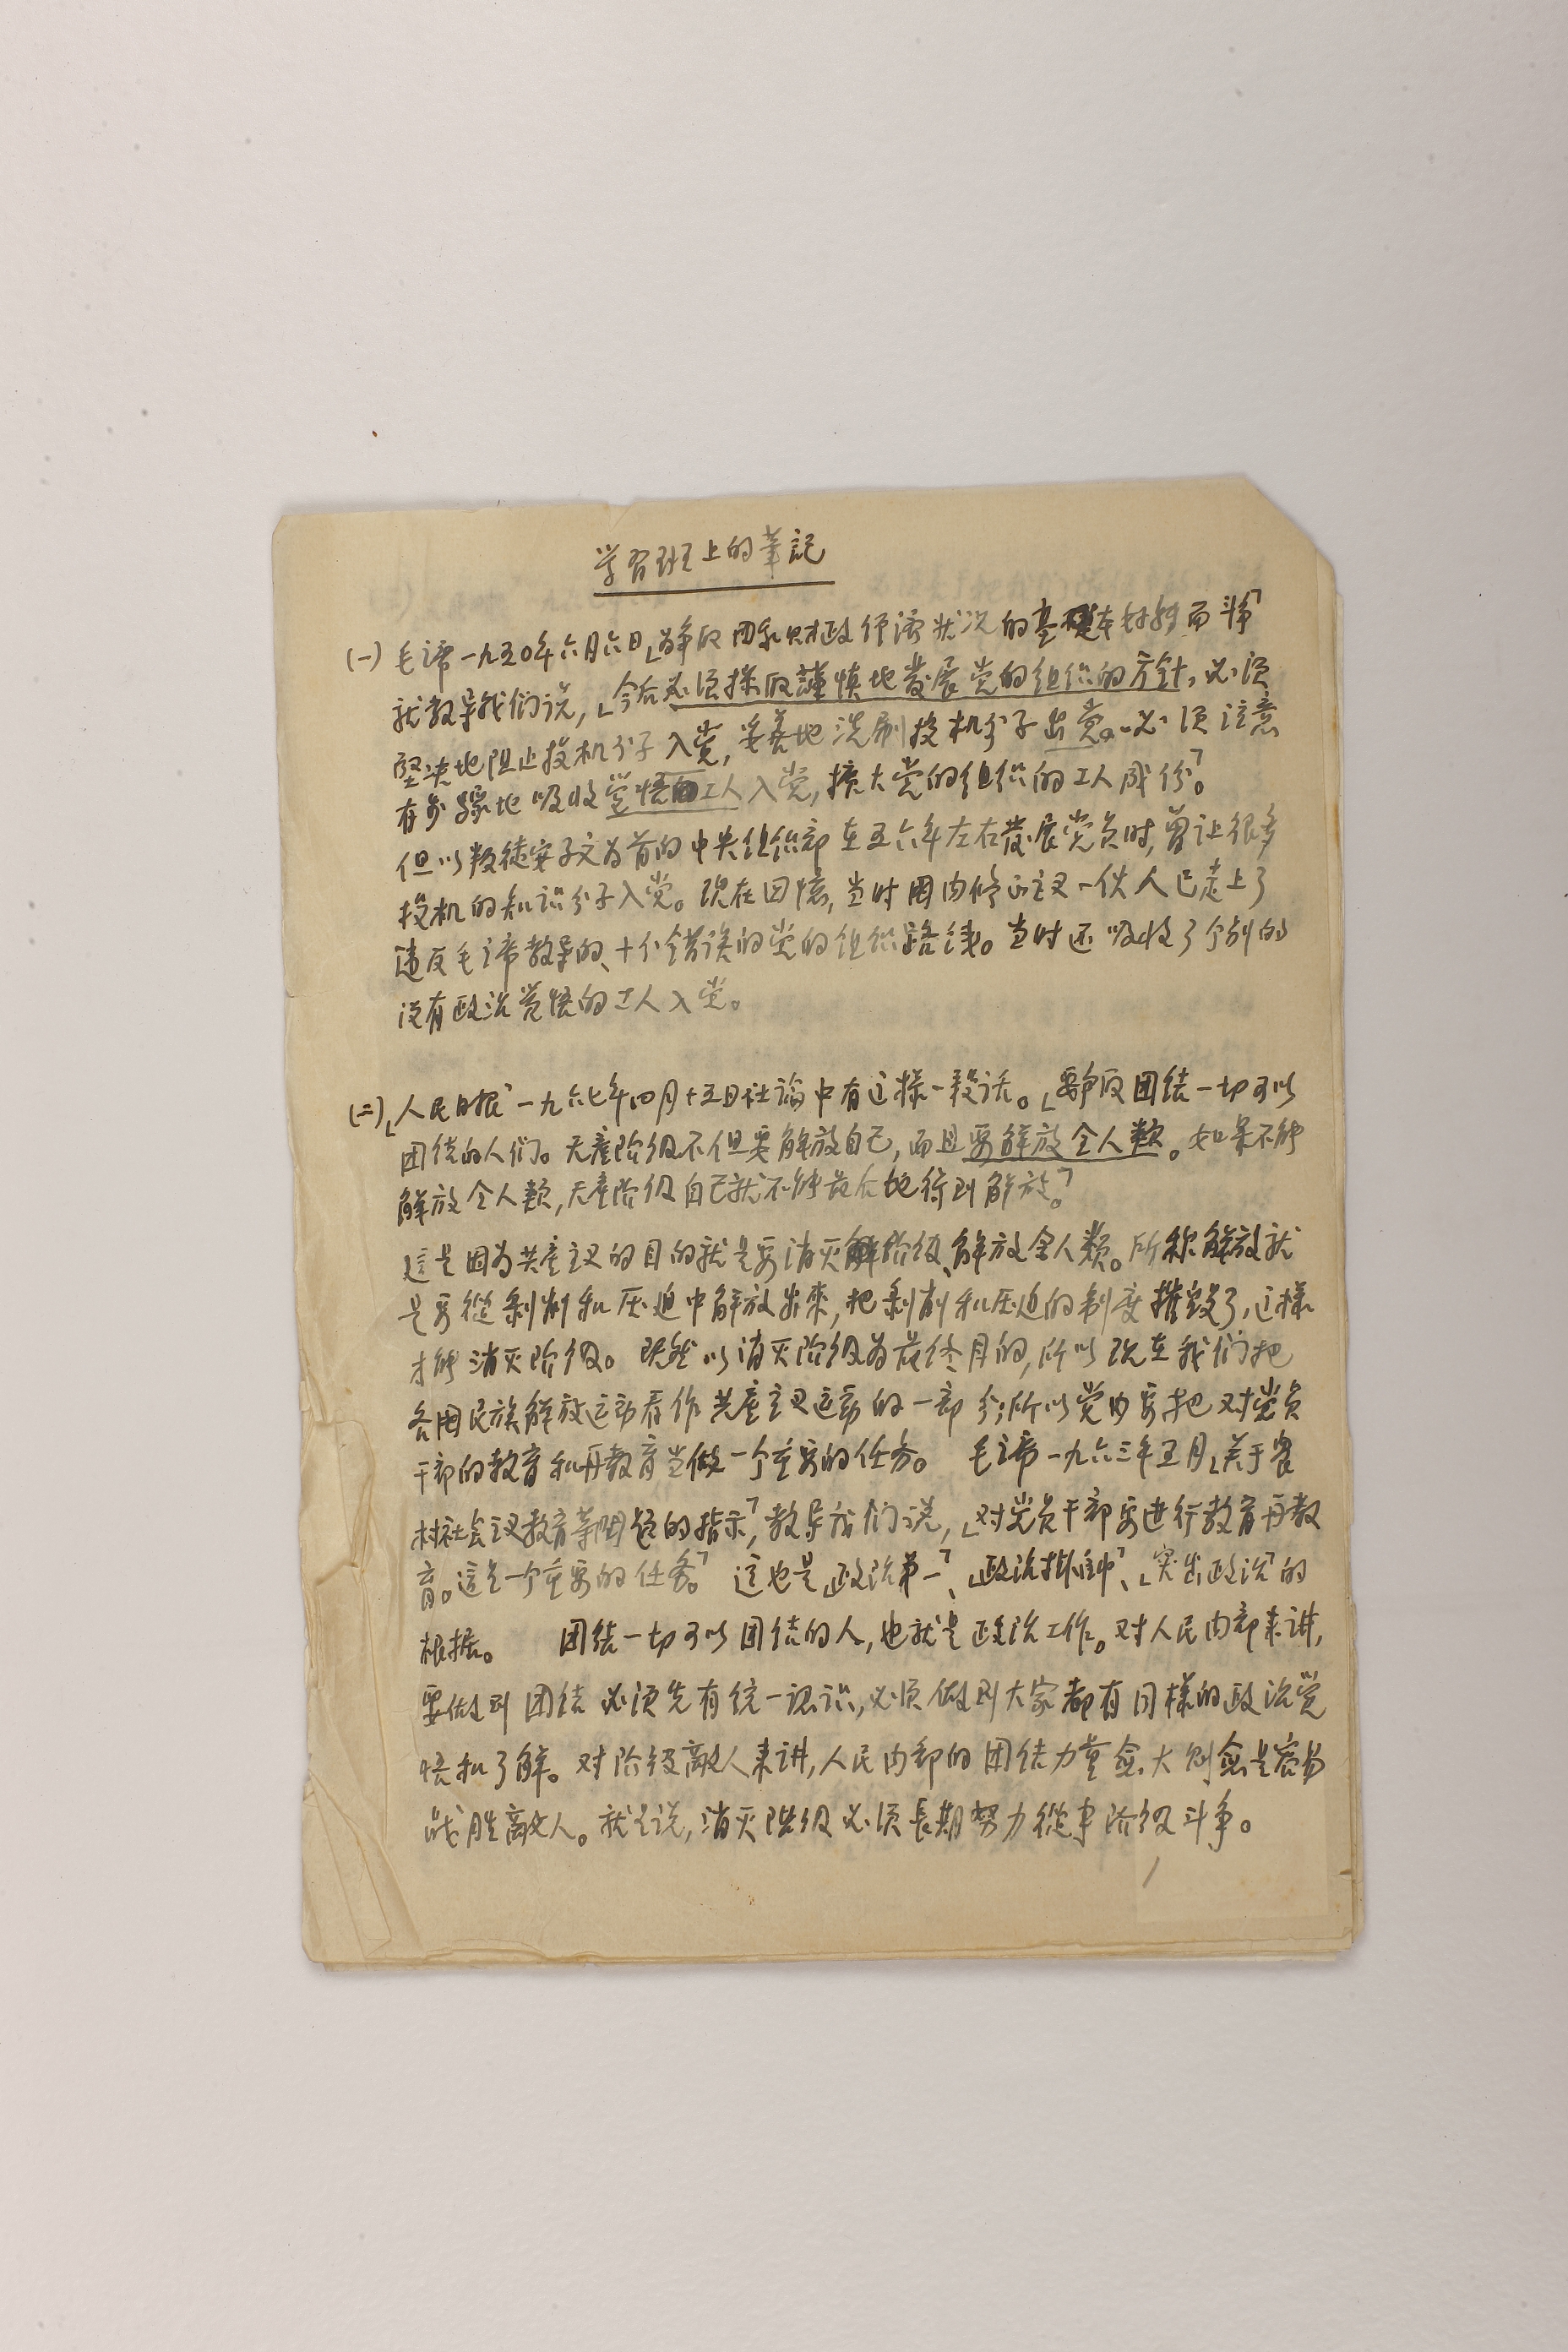 学習班上的筆記
(一) 毛主席一九五〇年六月六日「为争取国家财政经济状况的基本好转而斗争」
就教导我们说,「今后必须採取謹慎地發展党的组织的方針,必须
堅决地阻止投机分子入党,妥善地洗刷投机分子出党。必须注意
有步驟地吸收觉悟的工人入党,擴大党的组织的工人成份」。
但以叛徒安子文为首的中央组织部在五六年左右發展党员时,曾让很多
投机的知识分子入党。现在回憶,当时国内修正主义一伙人已走上了
违反毛主席教导的、十分错误的党的组织路线。当时还吸收了个别的
没有政治觉悟的工人入党。
(二)「人民日报」一九六七年四月十五日社論中有这様一段话。「要争取团结一切可以
团结的人们。无產阶级不但要解放自己,而且要解放全人類。如果不能
解放全人類,无產阶级自己就不能最后地得到解放。」
這是因为共產主义的目的就是要消灭阶级、解放全人類。所称解放就
是要從剝削和压迫中解放出來,把剝削和压迫的制度摧毀了,这樣
才能消灭阶级。既然以消灭阶级为最终目的,所以现在我们把
各国民族解放运动看作共產主义运動的一部分;所以党内要把对党员
干部的教育和再教育当做一个重要的任务。 毛主席一九六三年五月「关于農
村社会主义教育等問题的指示」,教导我们说,「对党员干部要进行教育再教
育。這是一个重要的任务。」 这也是「政治第一」、「政治掛帥」、「突出政治」的
根据。 团结一切可以团结的人,也就是政治工作。对人民内部来讲,
要做到团结必须先有统一認识,必须做到大家都有同様的政治觉
悟和了解。对阶级敵人来讲,人民内部的团结力量愈大则愈是容易
战胜敵人。就是说,消灭阶级必须長期努力從事阶级斗争。
1